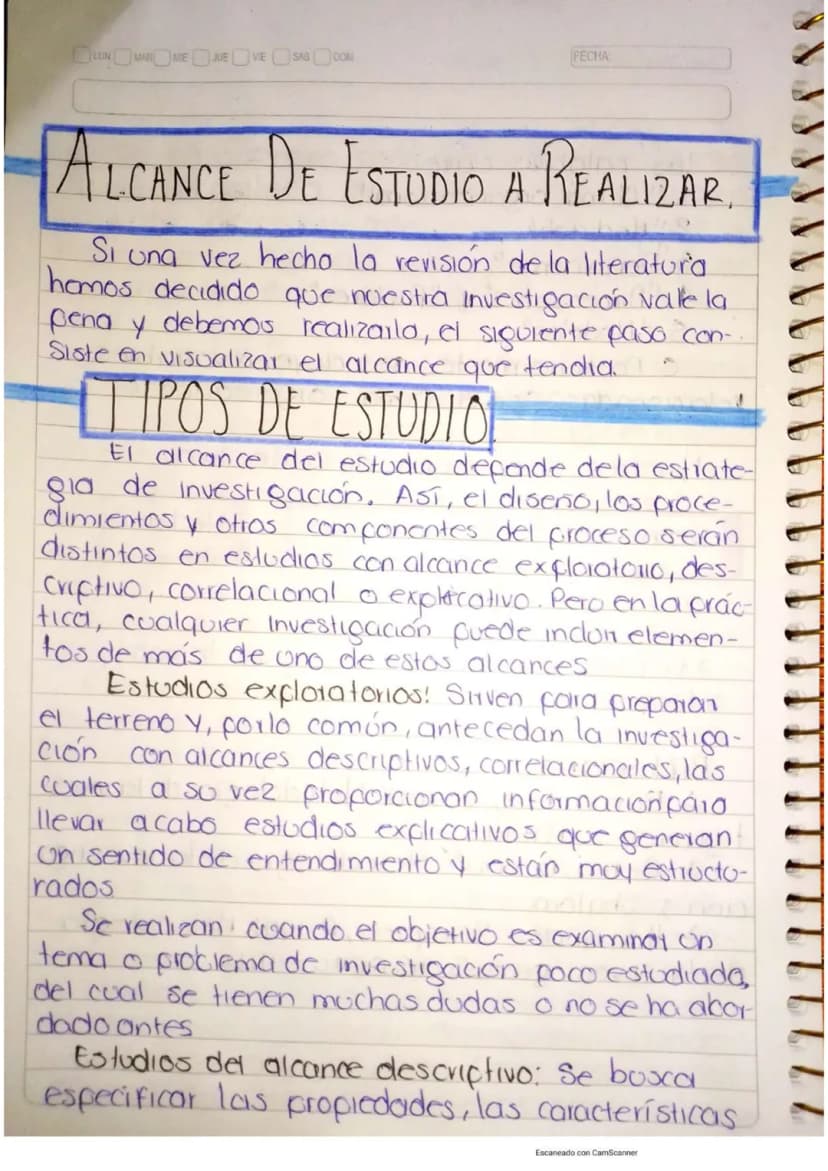 LUN MAR MIE JUE VIE SAB DOM FECHA:
ALCANCE DE ESTUDIO A REALIZAR.
Si una vez hecho la revisión de la literatura
hemos decidido que nuestra investigación vale la
pena y debemos realizarla, el siguiente paso con-
siste en visualizar el alcance que tendra.
TIPOS DE ESTUDIO.
El alcance del estudio depende de la estrate-
gia de investigación. Así, el diseño, los proce-
dimientos y otros componentes del proceso serán
distintos en estudios con alcance exploratorio, des-
criptivo, correlacional o explicativo. Pero en la prác-
tica, cualquier investigación puede incluir elemen-
tos de más de uno de estos alcances
Estudios exploratorios: Sirven para preparar
el terreno y, por lo común, antecedan la investiga-
ción con alcances descriptivos, correlacionales, las
cuales a su vez proporcionan información para
llevar acabo estudios explicativos que generan
un sentido de entendimiento y están muy estructu-
rados
Se realizan cuando el objetivo es examinar un
tema o problema de investigación poco estudiada,
del cual se tienen muchas dudas o no se ha abor
dado antes
Estudios del alcance descriptivo: Se busca
especificar las propiedades, las características
Escaneado con CamScanner